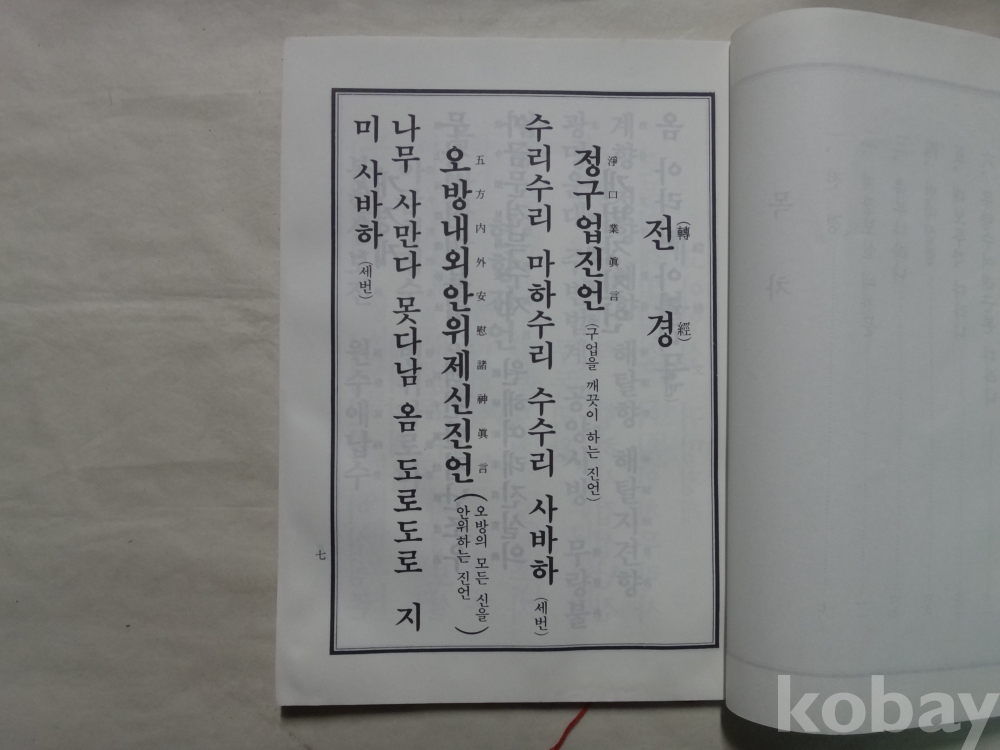 전(轉) 경(經)
정구업진언 淨口業眞言 (구업을 깨끗이 하는 진언)
수리수리 마하수리 수수리 사바하 (세번)
오방내외안위제신진언 五方內外安慰諸神眞言 (오방의 모든 신을 안위하는 진언)
나무 사만다 못다남 옴 도로도로 지
미 사바하 (세번)
七
목차
kobay